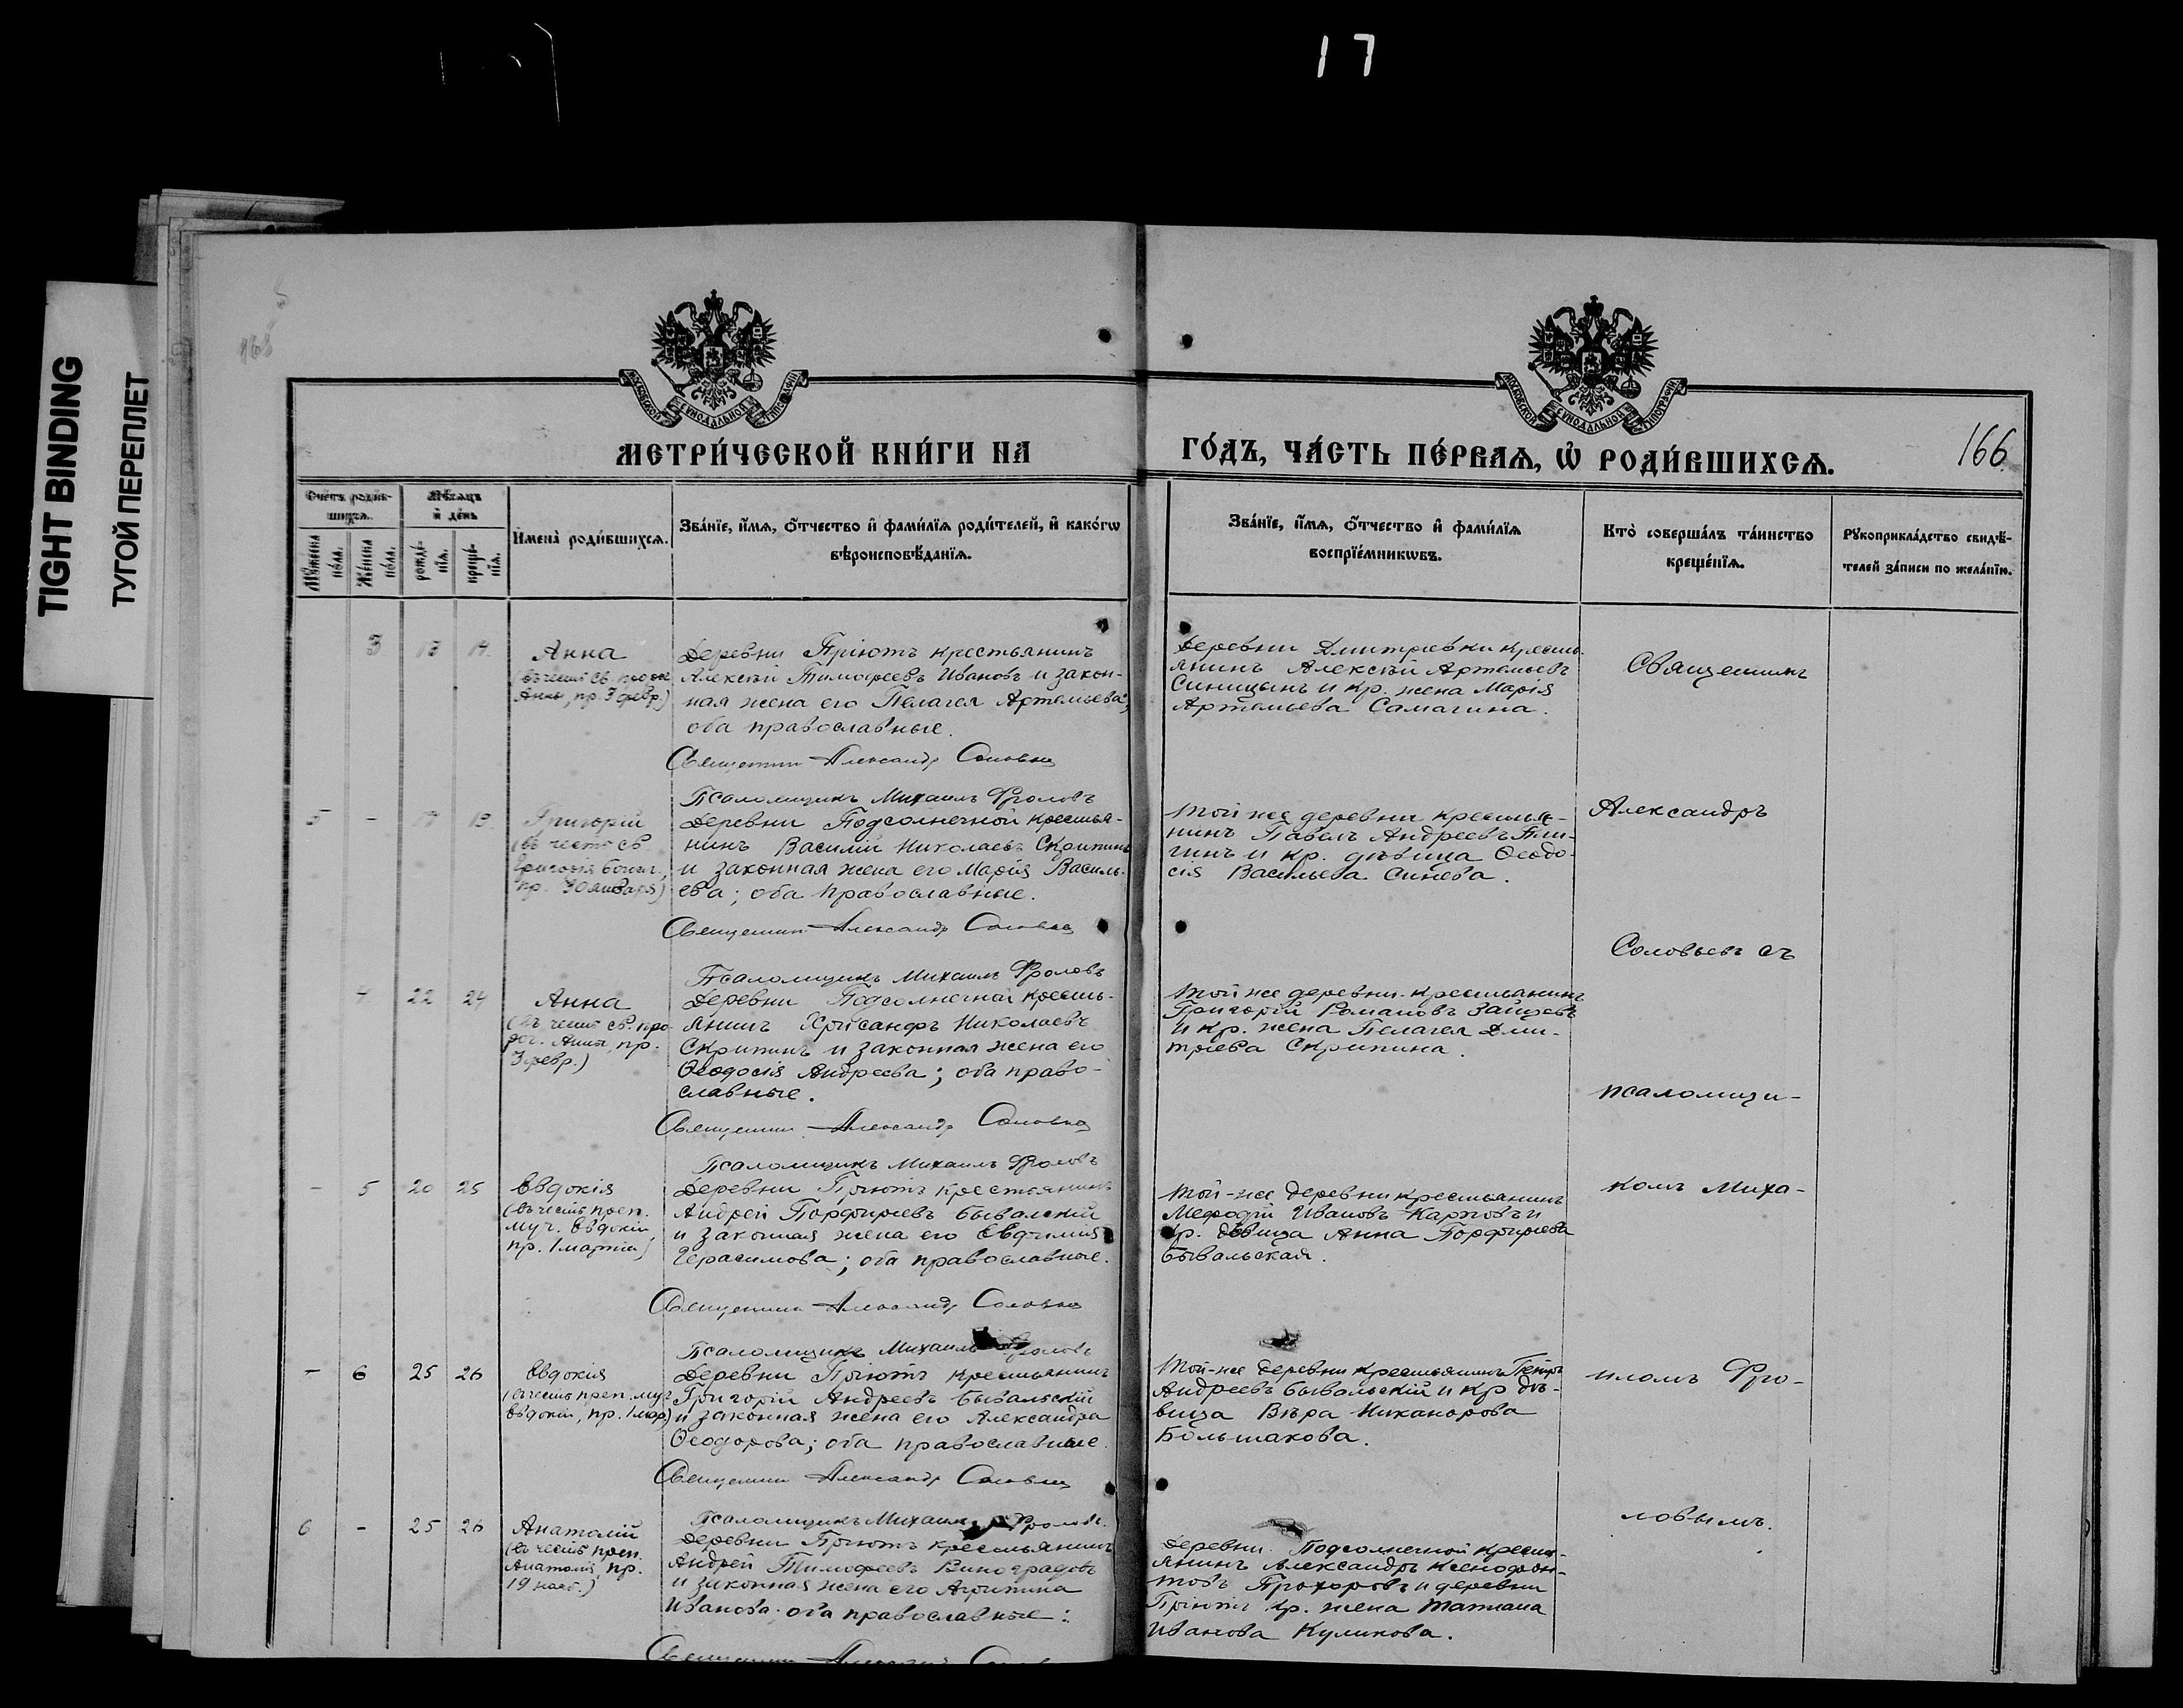 17
TIGHT BINDING
ТУГОЙ ПЕРЕПЛЕТ
МОСКОВСКОЙ СѴНОДАЛЬНОЙ ТИПОГРАФІИ
МОСКОВСКОЙ СѴНОДАЛЬНОЙ ТИПОГРАФІИ
МЕТРИ́ЧЕСКОЙ КНИ́ГИ НА
ГО́ДЪ, ЧА́СТЬ ПЕ́РВАѦ, Ѡ҆ РОДИ́ВШИХСѦ.
166
Сче́тъ роди́в-
шихсѧ.
Мꙋ́жеска по́ла.
Же́нска по́ла.
Мѣ́сѧцъ
и҆ де́нь
рожде́-
нїѧ.
креще́-
нїѧ.
И҆мена̀ роди́вшихсѧ.
Зва́нїе, и҆́мѧ, ѻ҆́тчество и҆ фами́лїѧ роди́телей, и҆ како́гѡ
вѣроисповѣ́данїѧ.
Зва́нїе, и҆́мѧ, ѻ҆́тчество и҆ фами́лїѧ
воспрїе́мникѡвъ.
Кто̀ соверша́лъ та́инство
креще́нїѧ.
Рꙋкоприкла́дство свидѣ́-
телей за́писи по жела́нїю.
3 13 14
Анна
(въ честь св. прор.
Анны, пр. 3 февр.)
Деревни Пріютъ крестьянинъ
Алексѣй Тимофеевъ Ивановъ и закон-
ная жена его Пелагея Артемьева;
оба православные.
Священникъ Александръ Соловьевъ
Псаломщикъ Михаилъ Фроловъ
Деревни Дмитревки кресть-
янинъ Алексѣй Артемьевъ
Синицынъ и кр. жена Марія
Артемьева Самагина.
Священникъ
5 - 17 19
Григорій
(въ честь св.
Григорія Богосл.,
пр. 30 января)
Деревни Подсолнечной крестья-
нинъ Василій Николаевъ Скрипинъ
и законная жена его Марія Василь-
ева; оба православные.
Священникъ Александръ Соловьевъ
Псаломщикъ Михаилъ Фроловъ
Той же деревни крестья-
нинъ Павелъ Андреевъ
и кр. дѣвица Ѳеодо-
сія Васильева Синева.
Александръ
Соловьевъ съ
4 22 24
Анна
(въ честь св. про-
роч. Анны, пр.
3 февр.)
Деревни Подсолнечной кресть-
янинъ Хрисанфъ Николаевъ
Скрипинъ и законная жена его
Ѳеодосія Андреева; оба право-
славные.
Священникъ Александръ Соловьевъ
Псаломщикъ Михаилъ Фроловъ
Той же деревни крестьянинъ
Григорій Романовъ Зайцевъ
и кр. жена Пелагея Дми-
тріева Скрипина.
псаломщи-
- 5 20 25
Евдокія
(въ честь преп.
муч. Евдокіи,
пр. 1 марта)
Деревни Пріютъ крестьянинъ
Андрей Порфирьевъ Бывальскій
и законная жена его Евфимія
Герасимова; оба православные.
Священникъ Александръ Соловьевъ
Псаломщикъ Михаилъ Фроловъ
Той-же деревни крестьянинъ
Мефодій Ивановъ Карповъ и
кр. дѣвица Анна Порфирьева
Бывальская.
комъ Миха-
- 6 25 26
Евдокія
(въ честь преп. муч.
Евдокіи, пр. 1 мар.)
Деревни Пріютъ крестьянинъ
Григорій Андреевъ Бывальскій
и законная жена его Александра
Ѳеодорова; оба православные.
Священникъ Александръ Соловьевъ
Псаломщикъ Михаилъ Фроловъ
Той-же деревни крестьянинъ Петръ
Андреевъ Бывальскій и кр. дѣ-
вица Вѣра Никанорова
Большакова.
иломъ Фро-
6 - 25 26
Анатолій
(въ честь преп.
Анатолія, пр.
19 нояб.)
Деревни Пріютъ крестьянинъ
Андрей Тимофеевъ Виноградовъ
и законная жена его Агрипина
Иванова; оба православные:
Священникъ Александръ
Деревни Подсолнечной кресть-
янинъ Александръ Ксенофон-
товъ Прохоровъ и деревни
Пріютъ кр. жена Татиана
Иванова Куликова.
ловымъ.